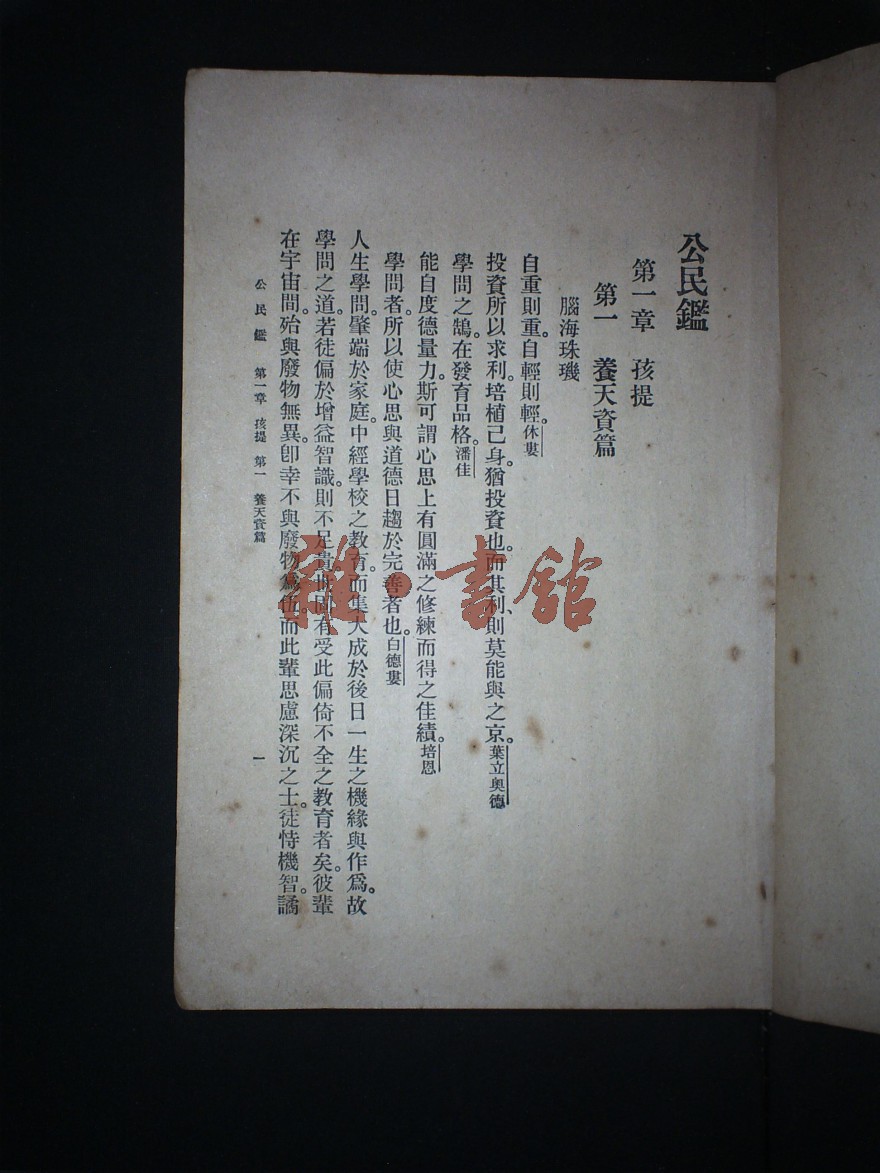 公民鑑
第一章　孩提
第一　養天資篇
腦海珠璣
自重則重。自輕則輕。休婁
投資所以求利。培植己身。猶投資也。而其利、則莫能與之京。葉立奧德
學問之鵠。在發育品格。潘佳
能自度德量力。斯可謂心思上有圓滿之修練而得之佳績。培恩
學問者。所以使心思與道德日趨於完善者也。白德婁
人生學問。肇端於家庭。中經學校之教育。而集大成於後日一生之機緣與作爲。故
學問之道。若徒偏於增益智識。則不足貴。世固有受此偏倚不全之教育者矣。彼輩
在宇宙間。殆與廢物無異。卽幸不與廢物爲伍。而此輩思慮深沉之士。徒恃機智。譎
公民鑑　第一章　孩提　第一　養天資篇
一
雜·書館